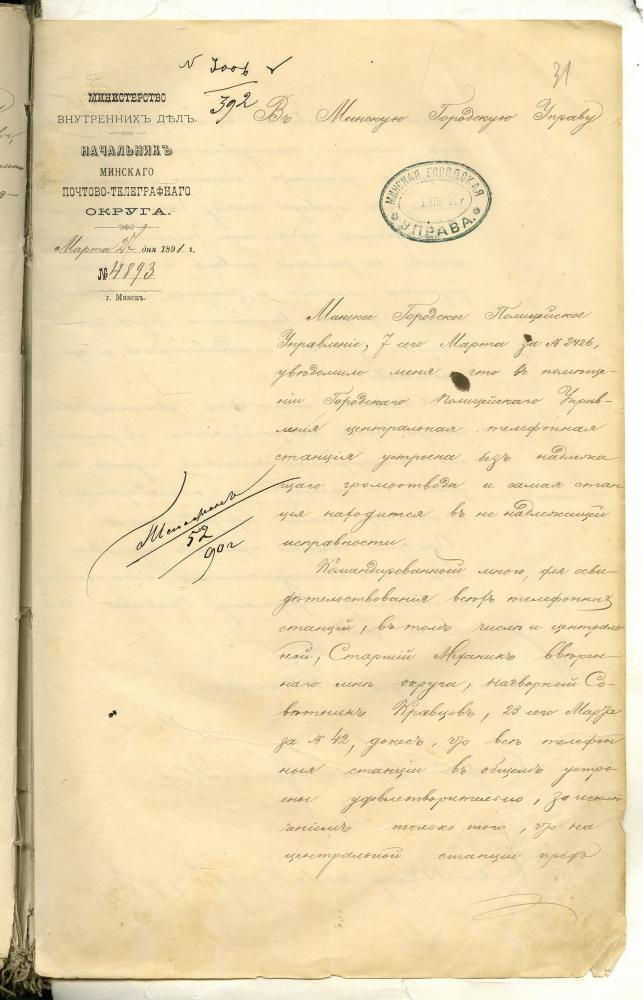 31
№ 3006
392
МИНИСТЕРСТВО
ВНУТРЕННИХЪ ДѢЛЪ.
НАЧАЛЬНИКЪ
МИНСКАГО
ПОЧТОВО-ТЕЛЕГРАФНАГО
ОКРУГА.
Марта 27 дня 1891 г.
№ 4893
г. Минскъ.
Въ Минскую Городскую Управу
МИНСКАЯ ГОРОДСКАЯ
УПРАВА.
Минское Городское Полицейское
Управленіе, 7 сего Марта за № 2426,
увѣдомило меня что въ помѣще-
ніи Городскаго Полицейскаго Управ-
ленія центральная телефонная
станція устроена безъ надлежа
щаго громоотвода и самая стан
ція находится въ не надлежащей
исправности.
Телефонъ
52
90 г
Командированный мною, для осви
дѣтельствованія всѣхъ телефонныхъ
станцій, въ томъ числѣ и централь
ной, Старшій Механикъ ввѣрен-
наго мнѣ округа, надворный Со-
вѣтникъ Кравцовъ, 23 сего Марта
за № 42, донесъ, что всѣ телефон
ныя станціи въ общемъ устро-
ены удовлетворительно, за исклю
ченіемъ только того, что на
центральной станціи предъ